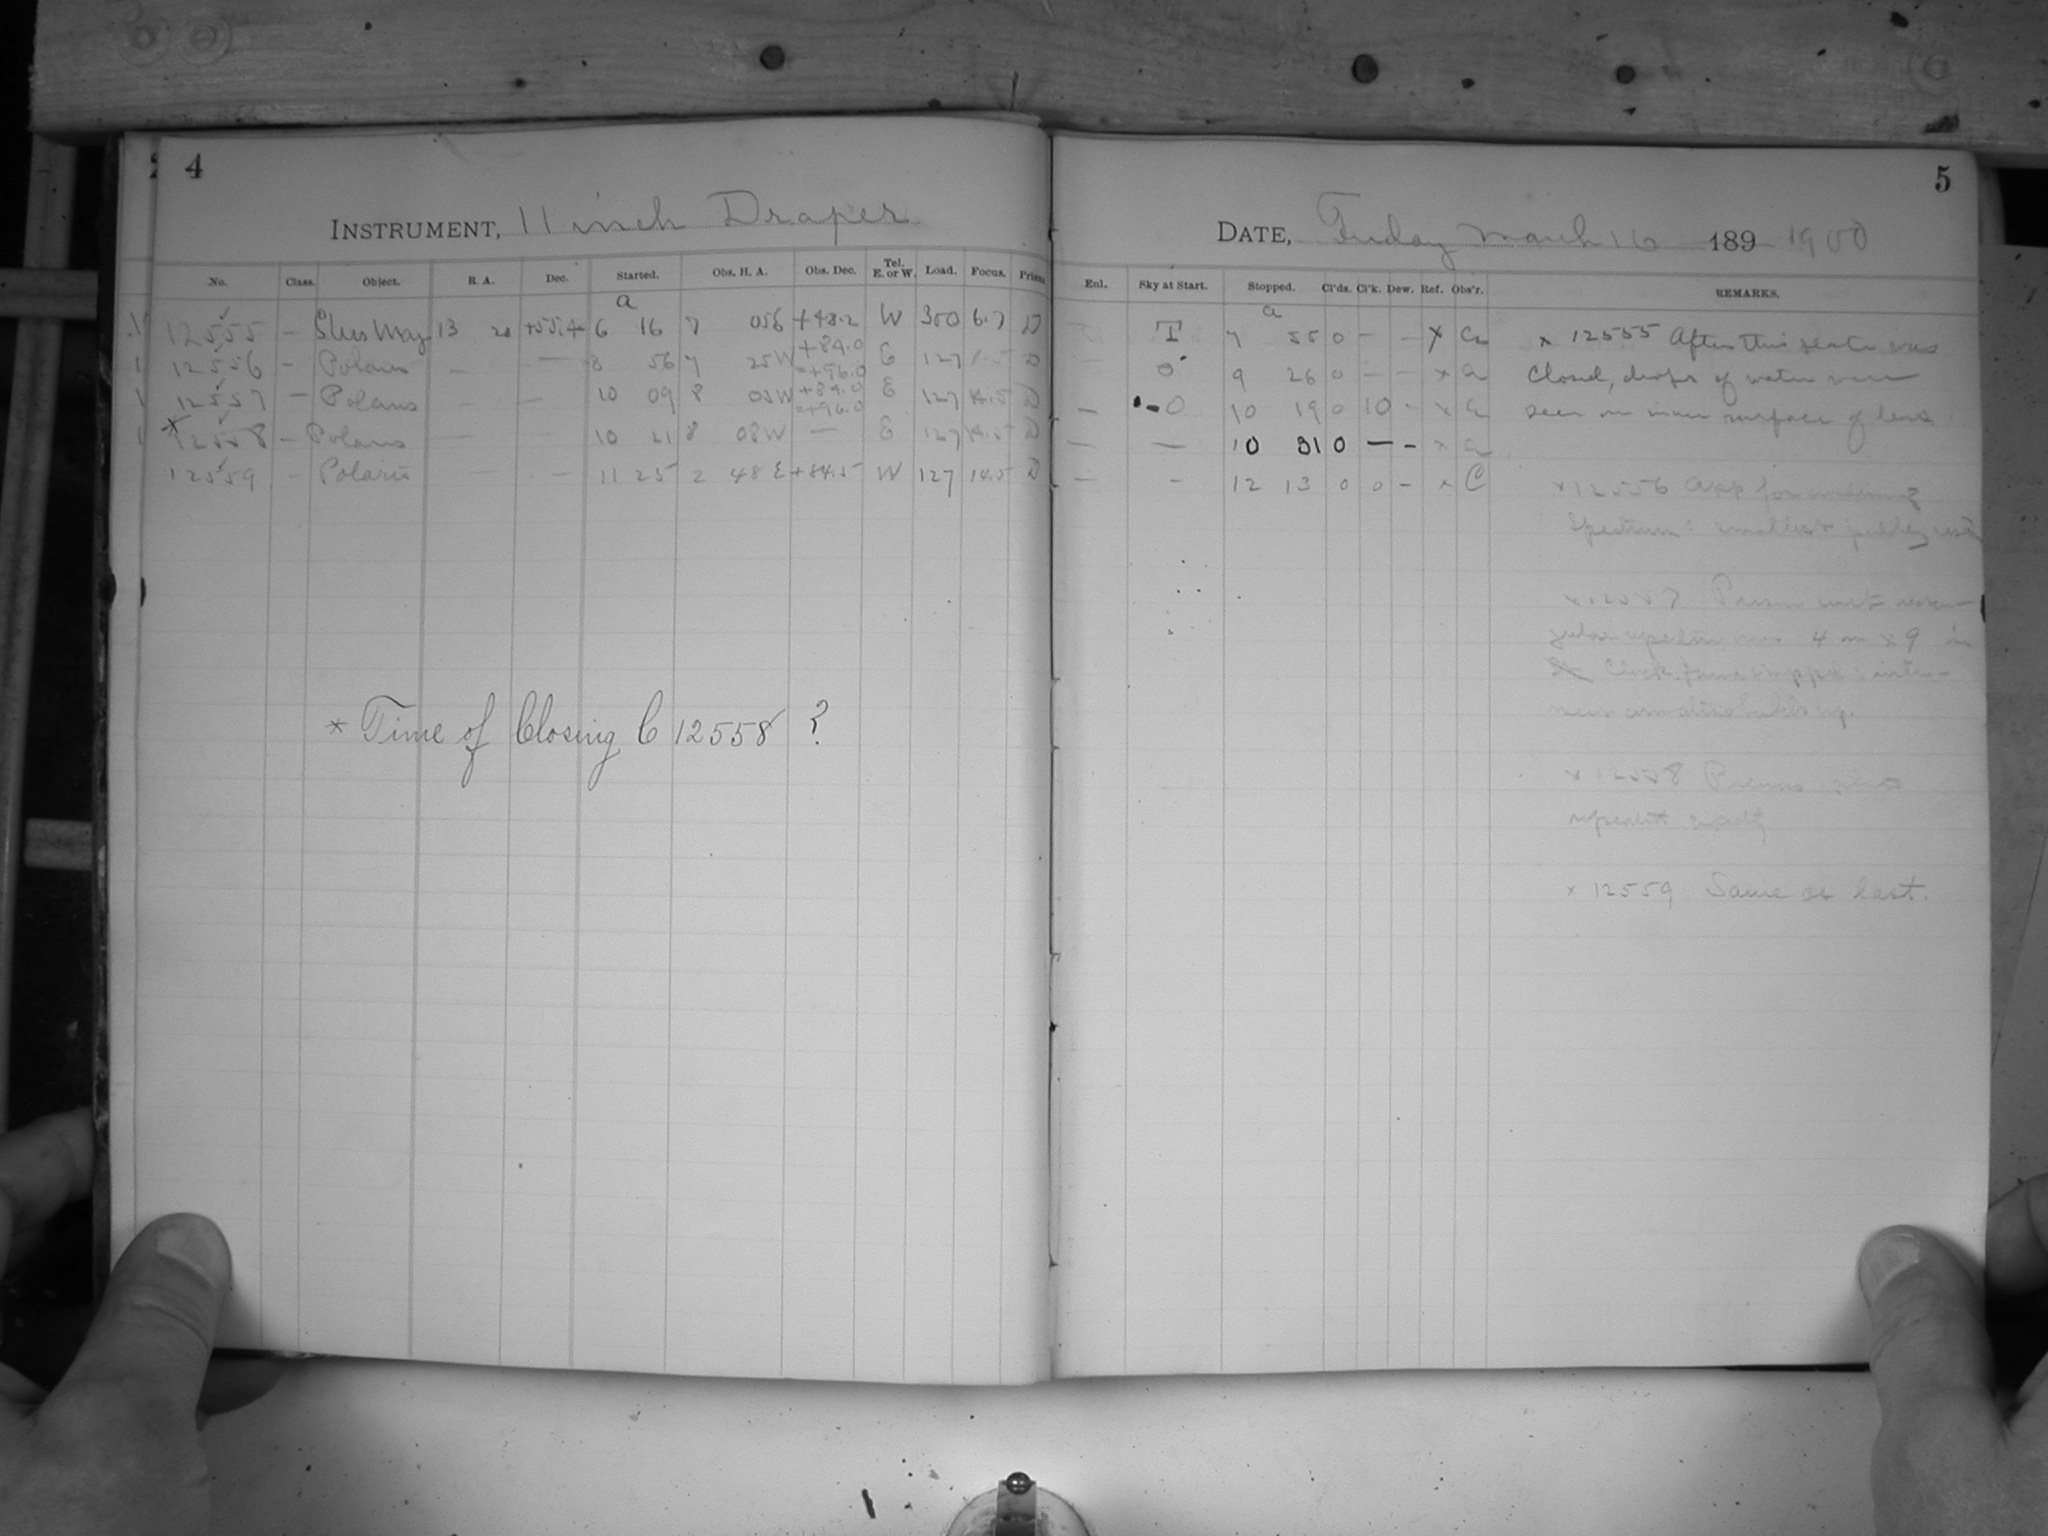 4
INSTRUMENT, 11 inch Draper
No. Class. Object. R. A. Dec. Started. Obs. H. A. Obs. Dec. Tel. E. or W. Load. Focus. Prism
a
12555 – 13 20 +55.4 6 16 7 056 +48.2 W 300 6.7 D
+84.0
12556 – Polaris – — 8 56 7 25W =+96.0 E 127 D
+84.0
12557 – Polaris — — 10 09 8 03W =+96.0 E 127 14.5 D
* 12558 – Polaris — — 10 21 8 08W — E 127 14.5 D
12559 – Polaris — — 11 25 2 48 E +84.5 W 127 14.5 D
* Time of Closing C 12558 ?
5
DATE, Friday March 16 189 1900
Enl. Sky at Start. Stopped. Cl'ds. Cl'k. Dew. Ref. Obs'r. REMARKS.
a
T 7 55 0 – – x a x 12555 After this plate was
0 9 26 0 – – x a Closed, drops of water were
– 0 10 19 0 10 – x a seen on inner surface of lens
— — 10 31 0 – – x a
— – 12 13 0 0 – x C
x 12556 App for
Spectrum: smallest pulley used
x 12557 Prism
4 in x 9 in
x 12558 Prisms
x 12559 Same as last.